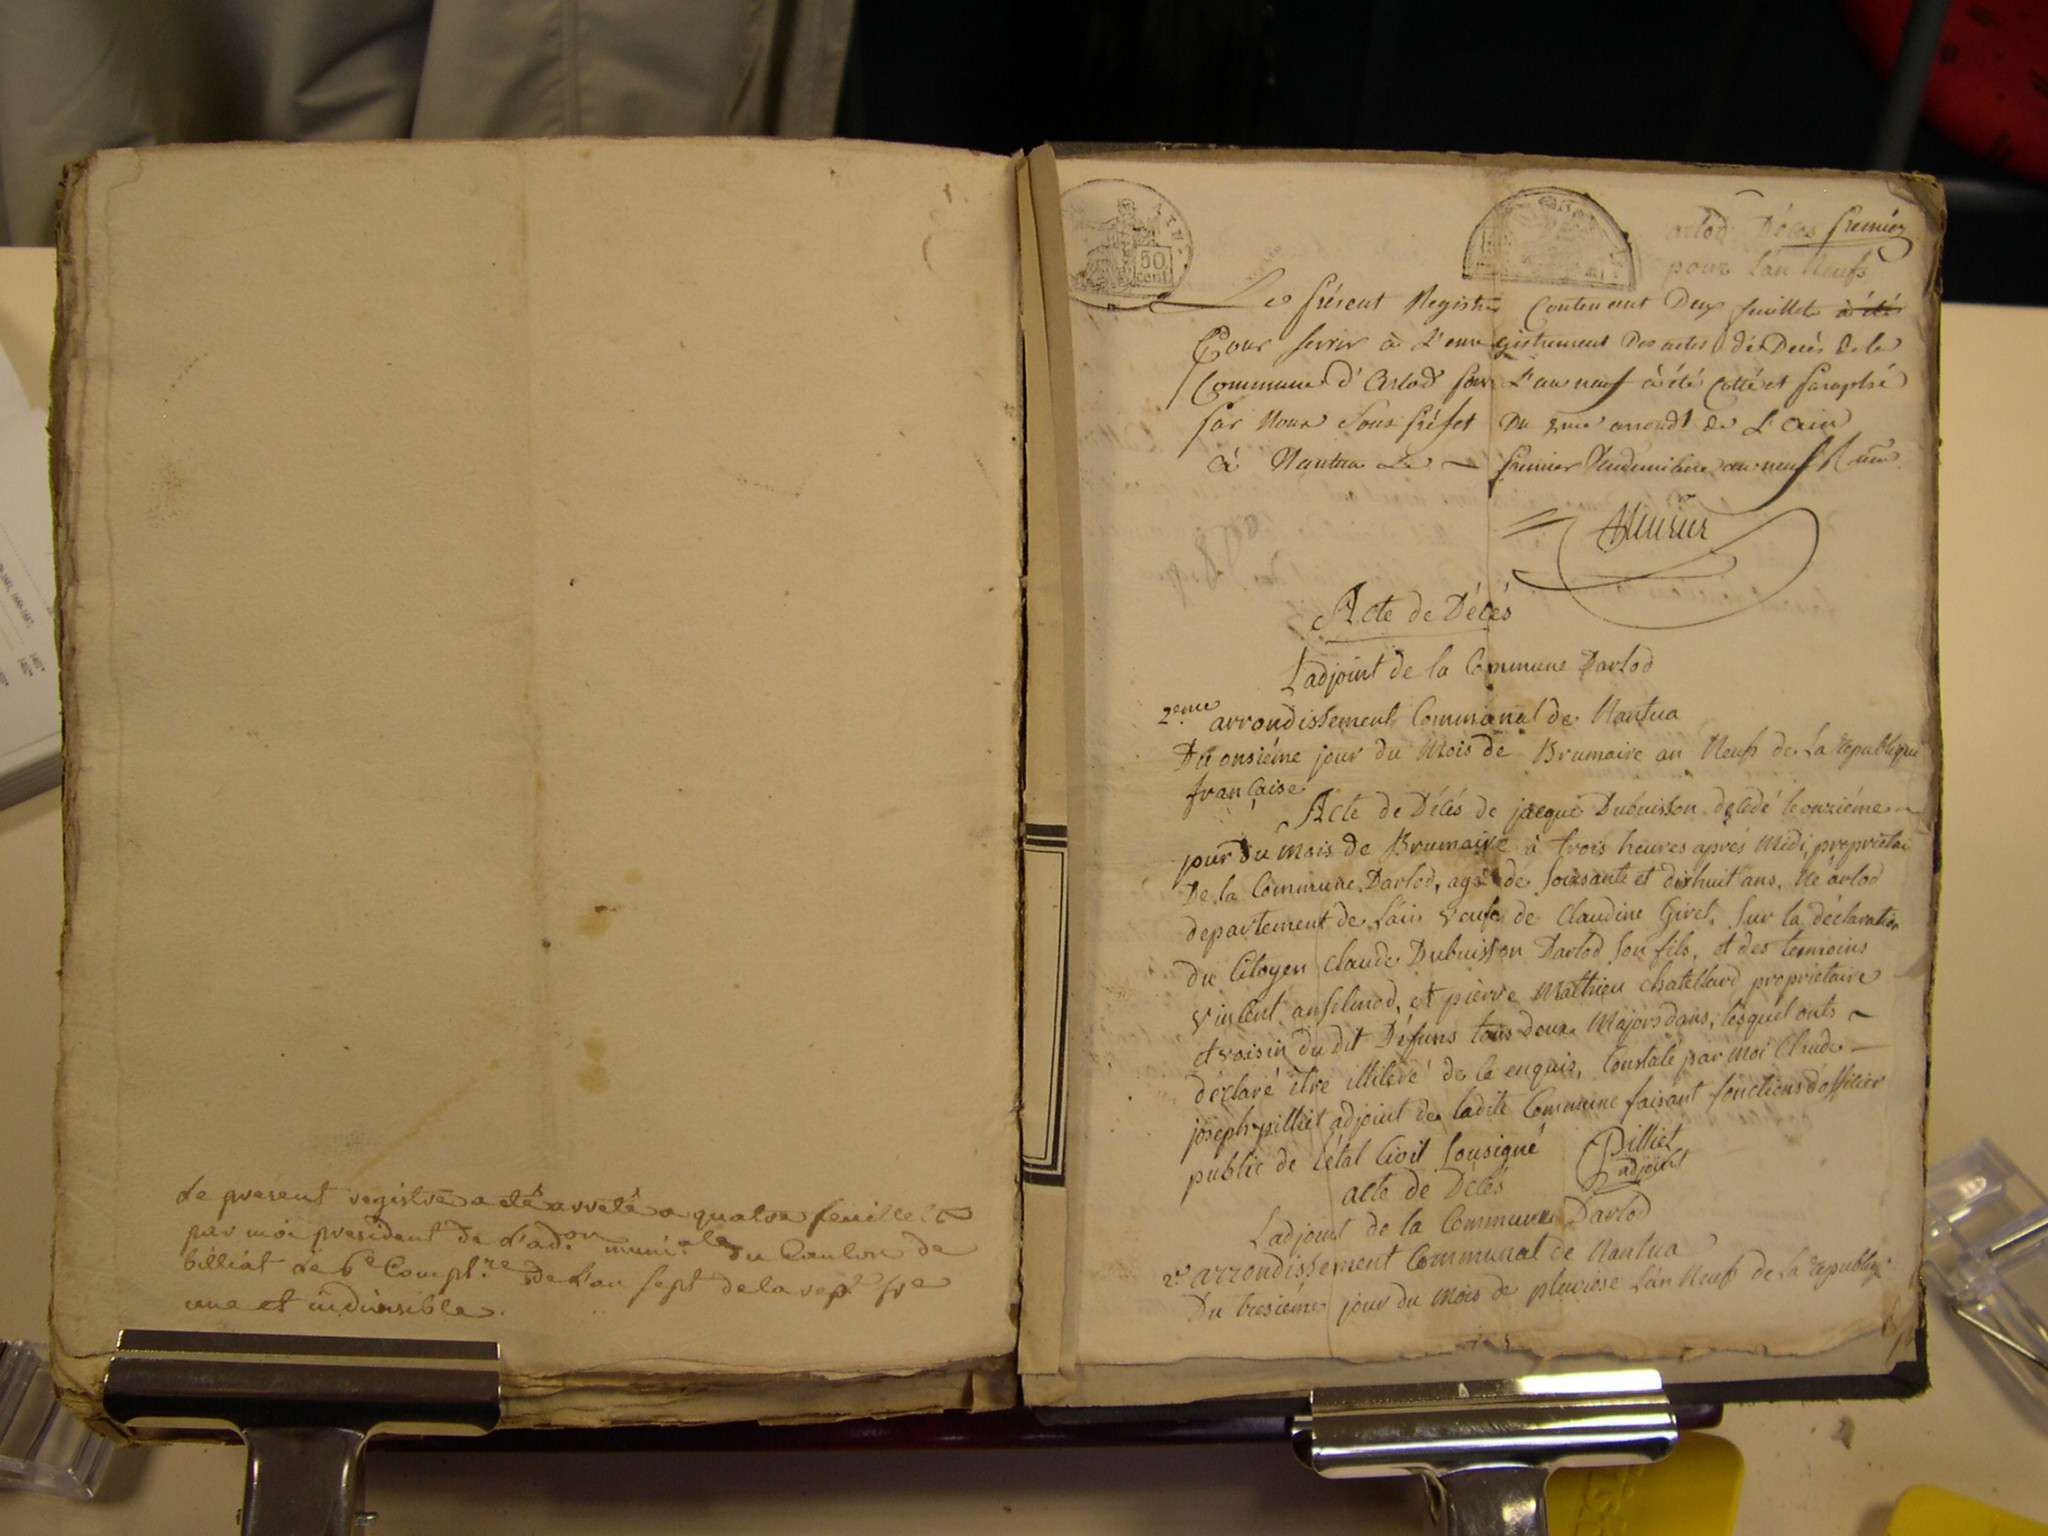 Le present registre a eté arreté a quatre feuillets
par moi president de l'ad.on muni.ale du Canton de
billiat le 6e Compl.re de l'an sept de la rep.e fr.e
une et indivisible.
AIN.
50
cent.
arlod Décès Premier
pour l'an Neuf
Le présent Registre Contenant Deux feuillets à été
Pour servir à L'enregistrement Des actes dé Decès de la
Commune d'Arlod pour L'an neuf à été Cotté et paraphé
par Nous Sous préfet Du 2me arrondt de L'Ain
à Nantua Le premier Vendemiaire an neuf
Acte de Décés
L'adjoint de la Commune Darlod
2eme arrondissement Communal de Nantua
Du onsiéme jour du Mois de Brumaire an Neuf de La republique
française
Acte de Décés de jacque Dubuisson decedé le onziéme
jour du mois de Brumaire à trois heures aprés Midi, proprietai
De la Commune Darlod, agé de soixante et dixhuit ans, Né arlod
departement de Lain veufe de Claudine Giret, Sur la déclaration
du Citoyen Claude Dubuisson Darlod Son fils, et des temoins
vinCent anselmod, et pierre Mathieu Chatellard proprietaire
et voisin du dit Défuns tous deux Majors dans, lesquel onts
déclaré etre illiteré de Ce enquis, Constaté par Moi Claude
joseph pilliet adjoint de ladite Commune faisant fonctions d'officier
public de L'état Civil Sousigné Pilliet
adjoint
acte de Décés
Ladjoint de la Commune Darlod
2e arrondissement Communal de Nantua
Du tresiéme jour du Mois de pluviose Lan Neuf de La republiq